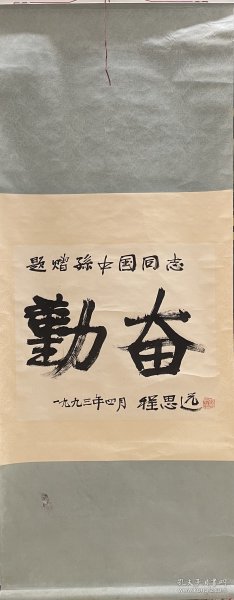 题赠孙中国同志
勤奋
一九九三年四月 程思远
孔夫子旧书网